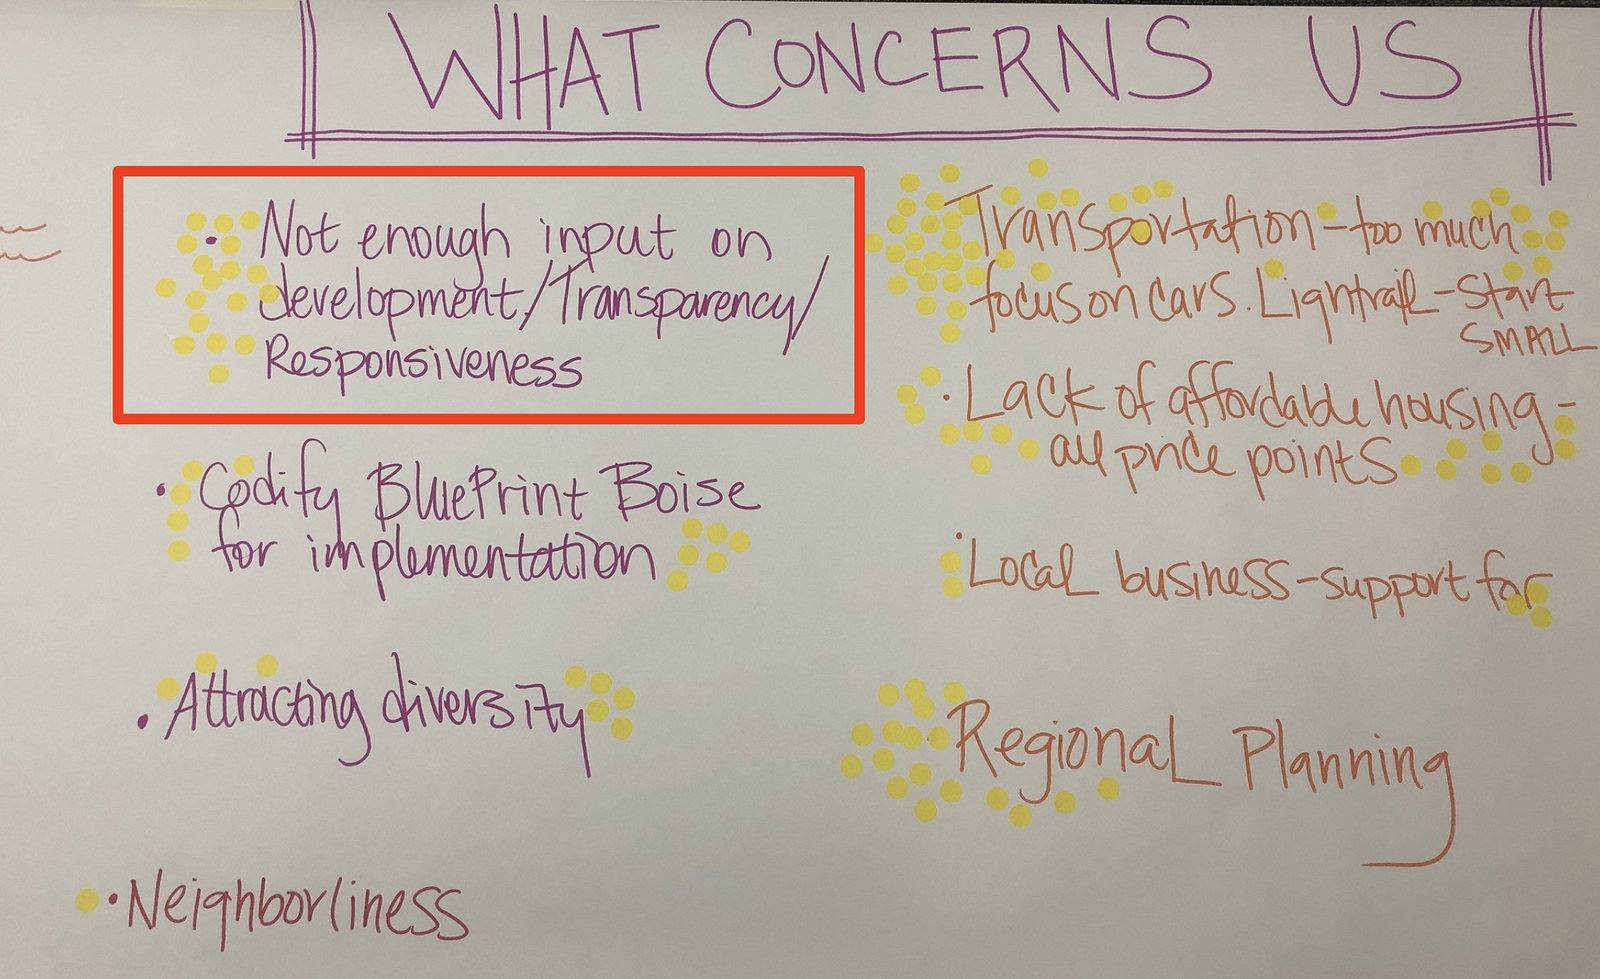 WHAT CONCERNS US
• Not enough input on
development/Transparency/
Responsiveness
• Codify BluePrint Boise
for implementation
• Attracting diversity
• Neighborliness
Transportation - too much
focus on cars. Lightrail - Start
SMALL
• Lack of affordable housing -
all price points
• Local business - support for
Regional Planning